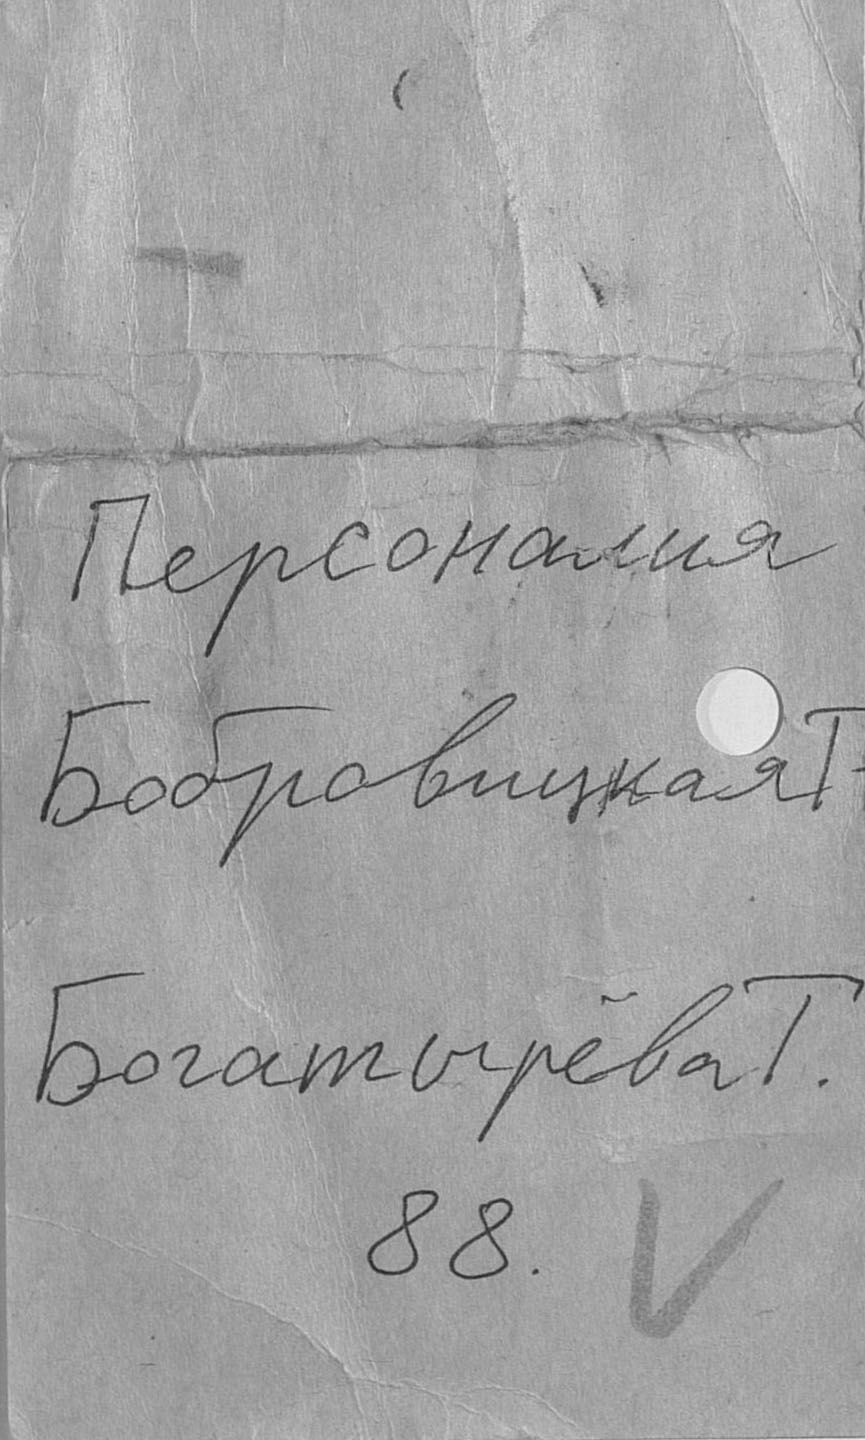 Персоналия
Бобровицкая Т.
Богатырёва Т.
88. V